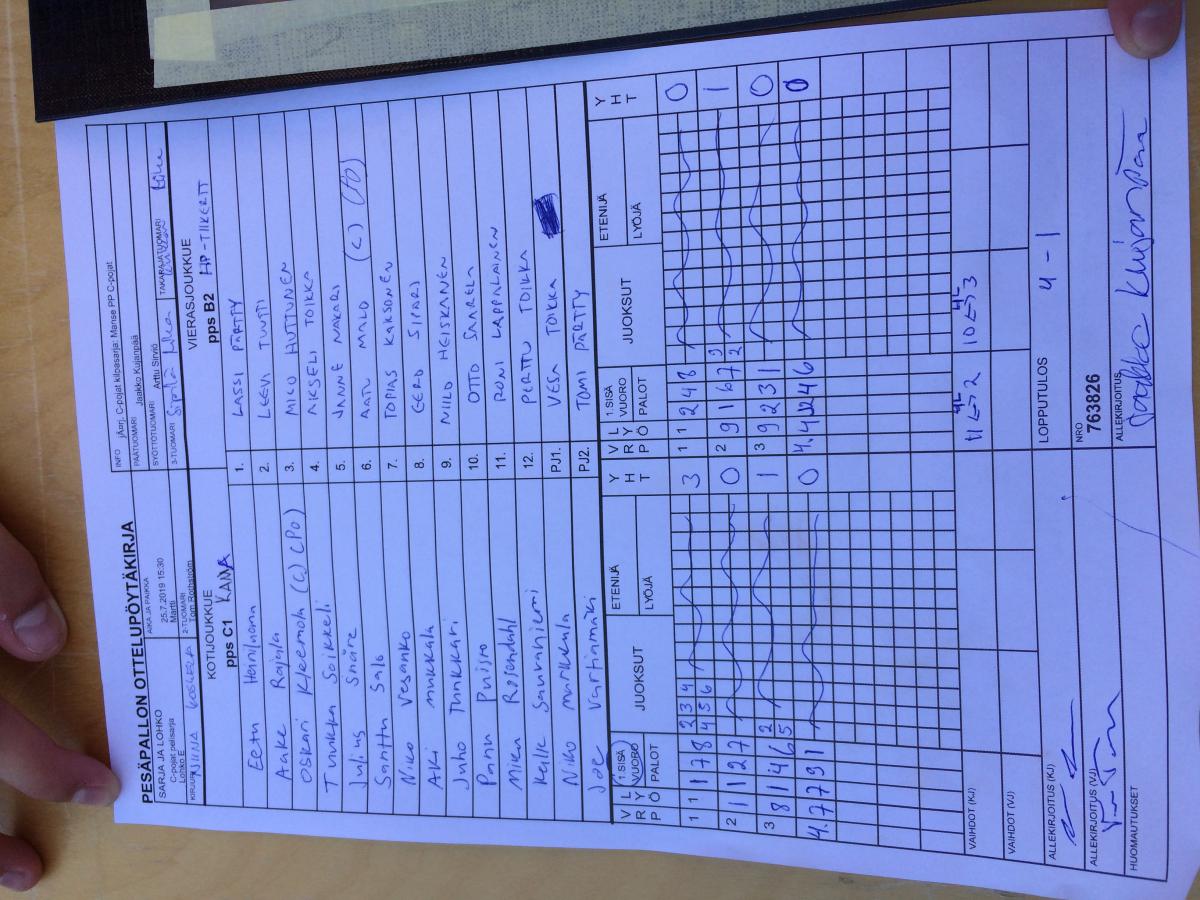 PESÄPALLON OTTELUPÖYTÄKIRJA
SARJA JA LOHKO
C-pojat pelisarja
Lohko E
AIKA JA PAIKKA
25.7.2019 15:30
Martti
INFO jÄorj. C-pojat kilpasarja: Manse PP C-pojat
PÄÄTUOMARI Jaakko Kujanpää
SYÖTTÖTUOMARI Arttu Sirviö
TAKARAJATUOMARI
KIRJURI
2-TUOMARI
Tom Rothström
3-TUOMARI
KOTIJOUKKUE
pps C1 KAMA
VIERASJOUKKUE
pps B2 HP-TIIKERIT
Eetu 1. LASSI PÄRTTY
Aake Rajala 2. LEEVI TUUTTI
Oskari Kleemola (C) (PO) 3. MICO HUTTUNEN
Tuukka Soikkeli 4. AKSELI TOIKKA
Julius Snäre 5. JANNE NAKARI
Santtu Salo 6. AATU MALO (C) (PO)
Niko Vesanko 7. TOPIAS KAKSONEN
Aki Mukkala 8. EERO SIPARI
Juho Tunkkari 9. NIILO HEISKANEN
Panu Puisto 10. OTTO SAARELA
Mika Rosendahl 11. RONI LAPPALAINEN
Kalle Sauvaniemi 12. PERTTU TOIKKA
Niko Markkula PJ1. VESA TOIKKA
Joe Vartiamäki PJ2. TOMI PÄRTTY
V R L Y Ö P 1.SISÄ VUORO PALOT JUOKSUT ETENIJÄ LYÖJÄ Y H T
V R L Y Ö P 1.SISÄ VUORO PALOT JUOKSUT ETENIJÄ LYÖJÄ Y H T
1 1 1 7 8 2 3 4 4 5 6 3 1 1 2 4 8 0
2 1 1 2 7 0 2 9 1 6 7 3 2 1
3 8 1 4 6 2 5 1 3 9 2 3 1 0
4. 7 7 9 1 0 4. 4 2 4 6 0
VAIHDOT (KJ) 11 <-> 2 10 <-> 3
VAIHDOT (VJ)
ALLEKIRJOITUS (KJ)
LOPPUTULOS 4 - 1
ALLEKIRJOITUS (VJ)
NRO
763826
HUOMAUTUKSET
ALLEKIRJOITUS
Jaakko Kujanpää